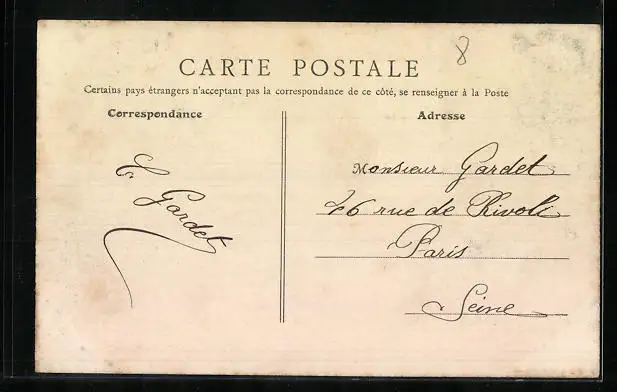 8
CARTE POSTALE
Certains pays étrangers n'acceptant pas la correspondance de ce côté, se renseigner à la Poste
Correspondance
Adresse
Gardet
Monsieur Gardet
46 rue de Rivoli
Paris
Seine